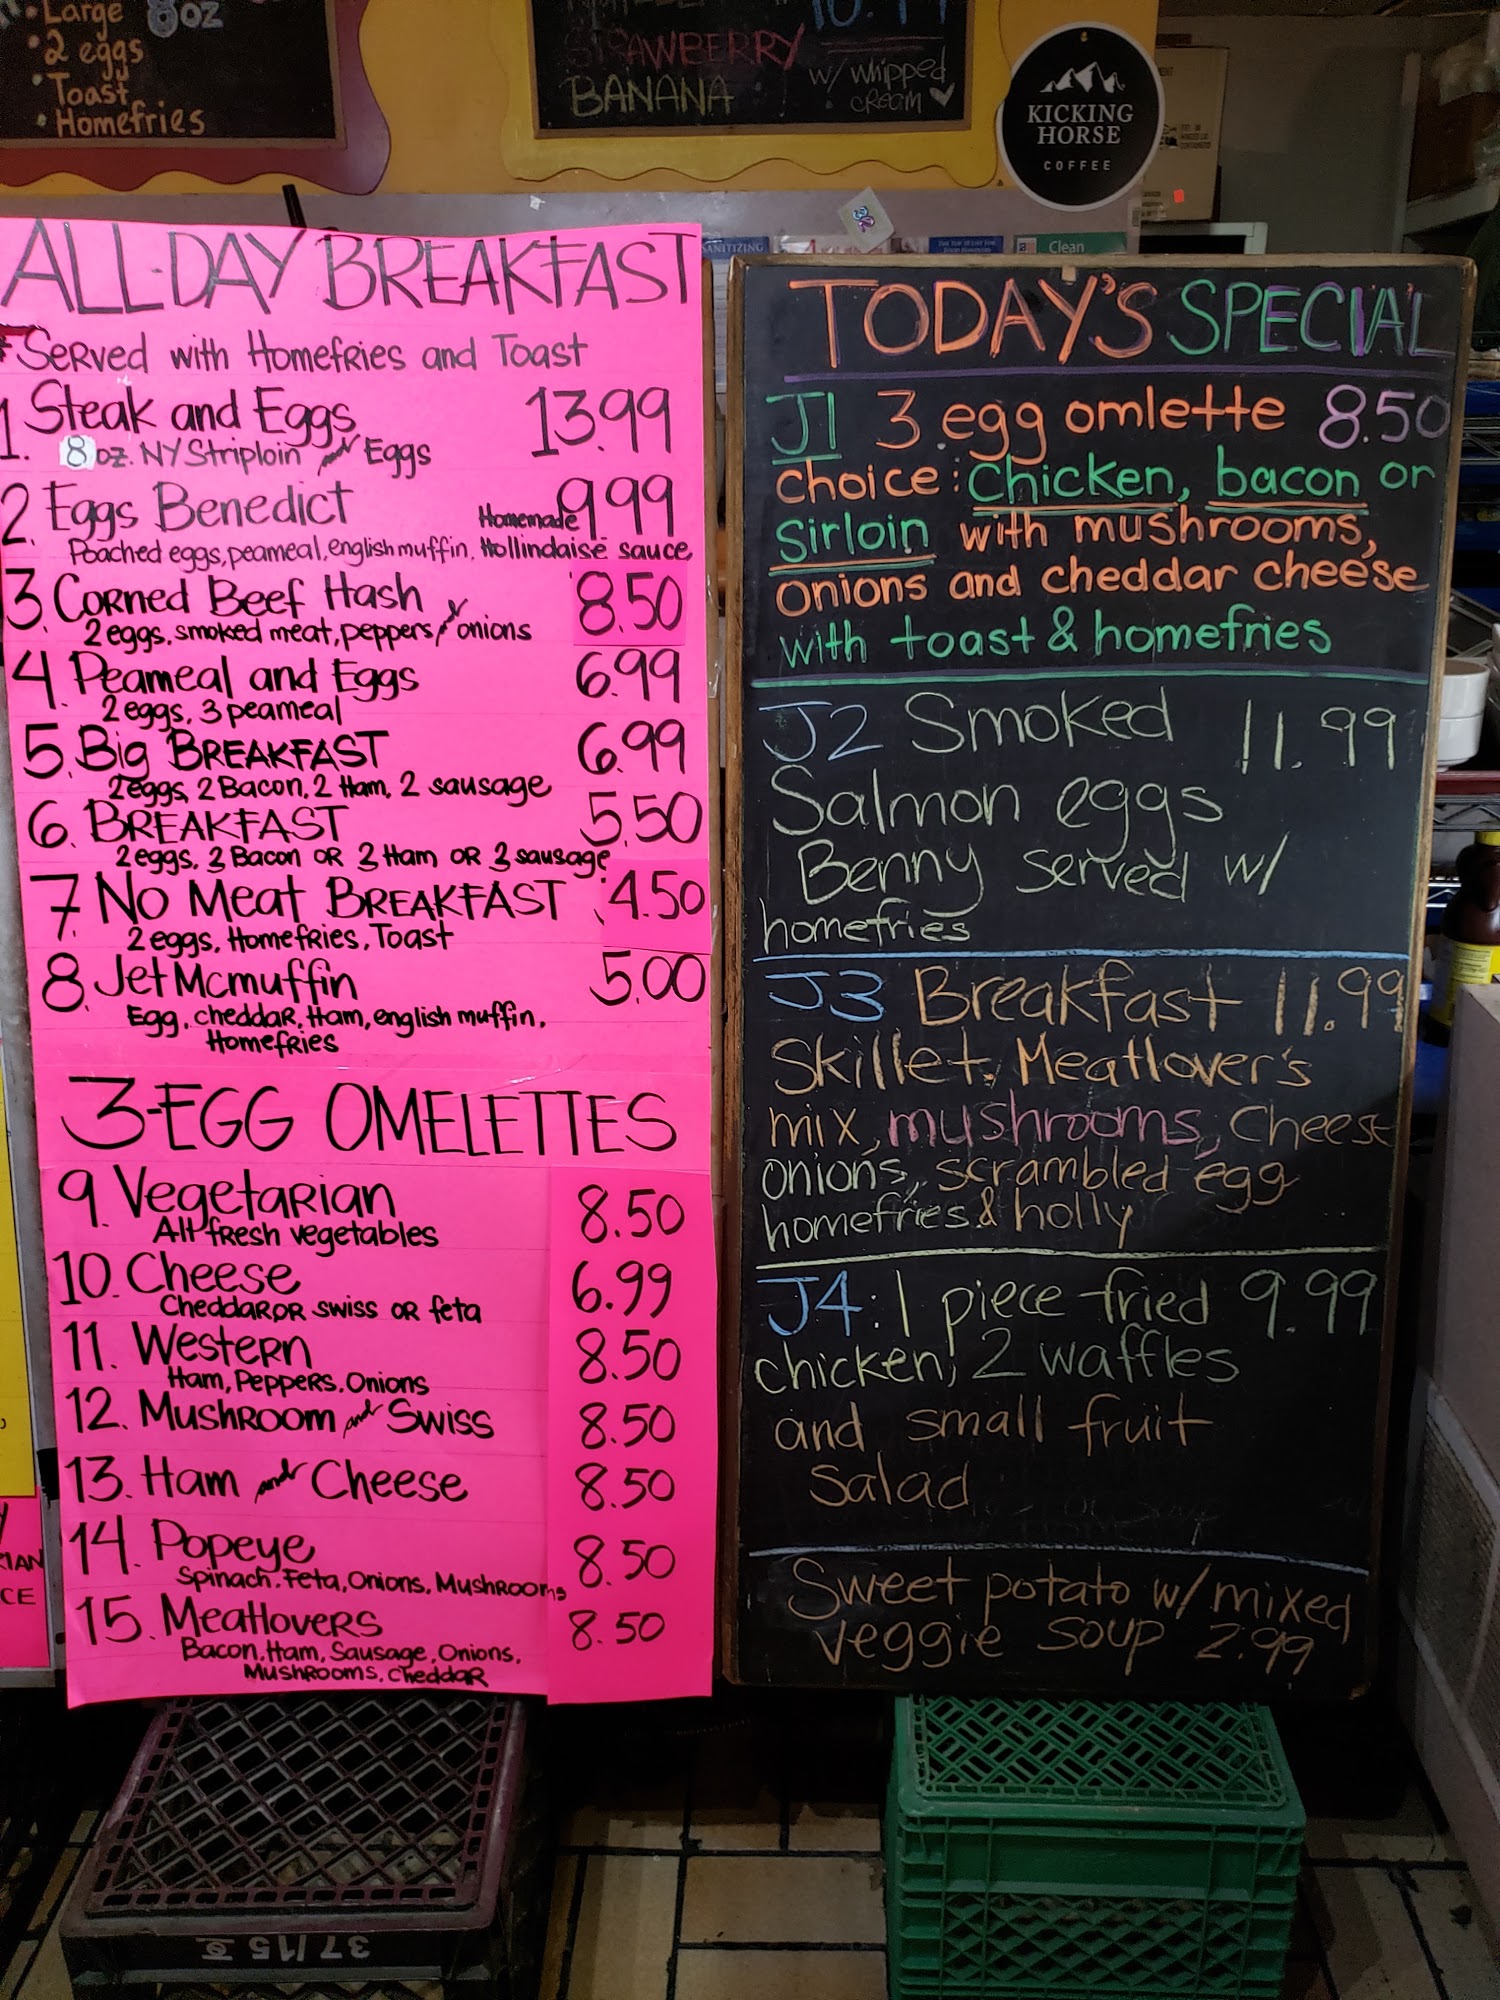 • Large 8oz
• 2 eggs
• Toast
• Homefries
STRAWBERRY
BANANA
w/ whipped
cream
KICKING
HORSE
COFFEE
SANITIZING
Clean
ALL-DAY BREAKFAST
*Served with Homefries and Toast
1. Steak and Eggs 13.99
8 oz. NY Striploin and Eggs
2. Eggs Benedict 9.99
Poached eggs, peameal, english muffin, Homemade Hollindaise sauce
3. Corned Beef Hash 8.50
2 eggs, smoked meat, peppers, onions
4. Peameal and Eggs 6.99
2 eggs, 3 peameal
5. Big BREAKFAST 6.99
2 eggs, 2 Bacon, 2 Ham, 2 sausage
6. BREAKFAST 5.50
2 eggs, 3 Bacon OR 3 Ham OR 3 sausage
7. No Meat BREAKFAST 4.50
2 eggs, Homefries, Toast
8. Jet Mcmuffin 5.00
Egg, cheddar, Ham, english muffin,
Homefries
3-EGG OMELETTES
9. Vegetarian 8.50
All fresh vegetables
10. Cheese 6.99
Cheddar OR swiss OR feta
11. Western 8.50
Ham, Peppers, Onions
12. Mushroom and Swiss 8.50
13. Ham and Cheese 8.50
14. Popeye 8.50
Spinach, Feta, Onions, Mushrooms
15. Meatlovers 8.50
Bacon, Ham, Sausage, Onions,
Mushrooms, cheddar
TODAY'S SPECIAL
J1 3 egg omlette 8.50
choice: Chicken, bacon or
Sirloin with mushrooms,
onions and cheddar cheese
with toast & homefries
J2 Smoked 11.99
Salmon eggs
Benny served w/
homefries
J3 Breakfast 11.99
Skillet. Meatlover's
mix, mushrooms, cheese
onions, scrambled egg
homefries & holly
J4: 1 piece fried 9.99
chicken, 2 waffles
and small fruit
salad
Sweet potato w/ mixed
veggie soup 2.99
37/15